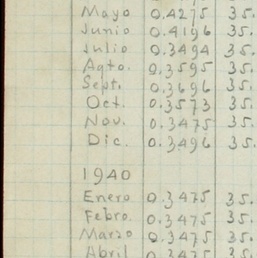 Mayo 0.4275 35.
Junio 0.4196 35.
Julio 0.3494 35.
Agto. 0.3595 35.
Sept. 0.3696 35.
Oct. 0.3573 35.
Nov. 0.3475 35.
Dic. 0.3496 35.
1940
Enero 0.3475 35.
Febro. 0.3475 35.
Marzo 0.3475 35.
Abril 0.3475 35.